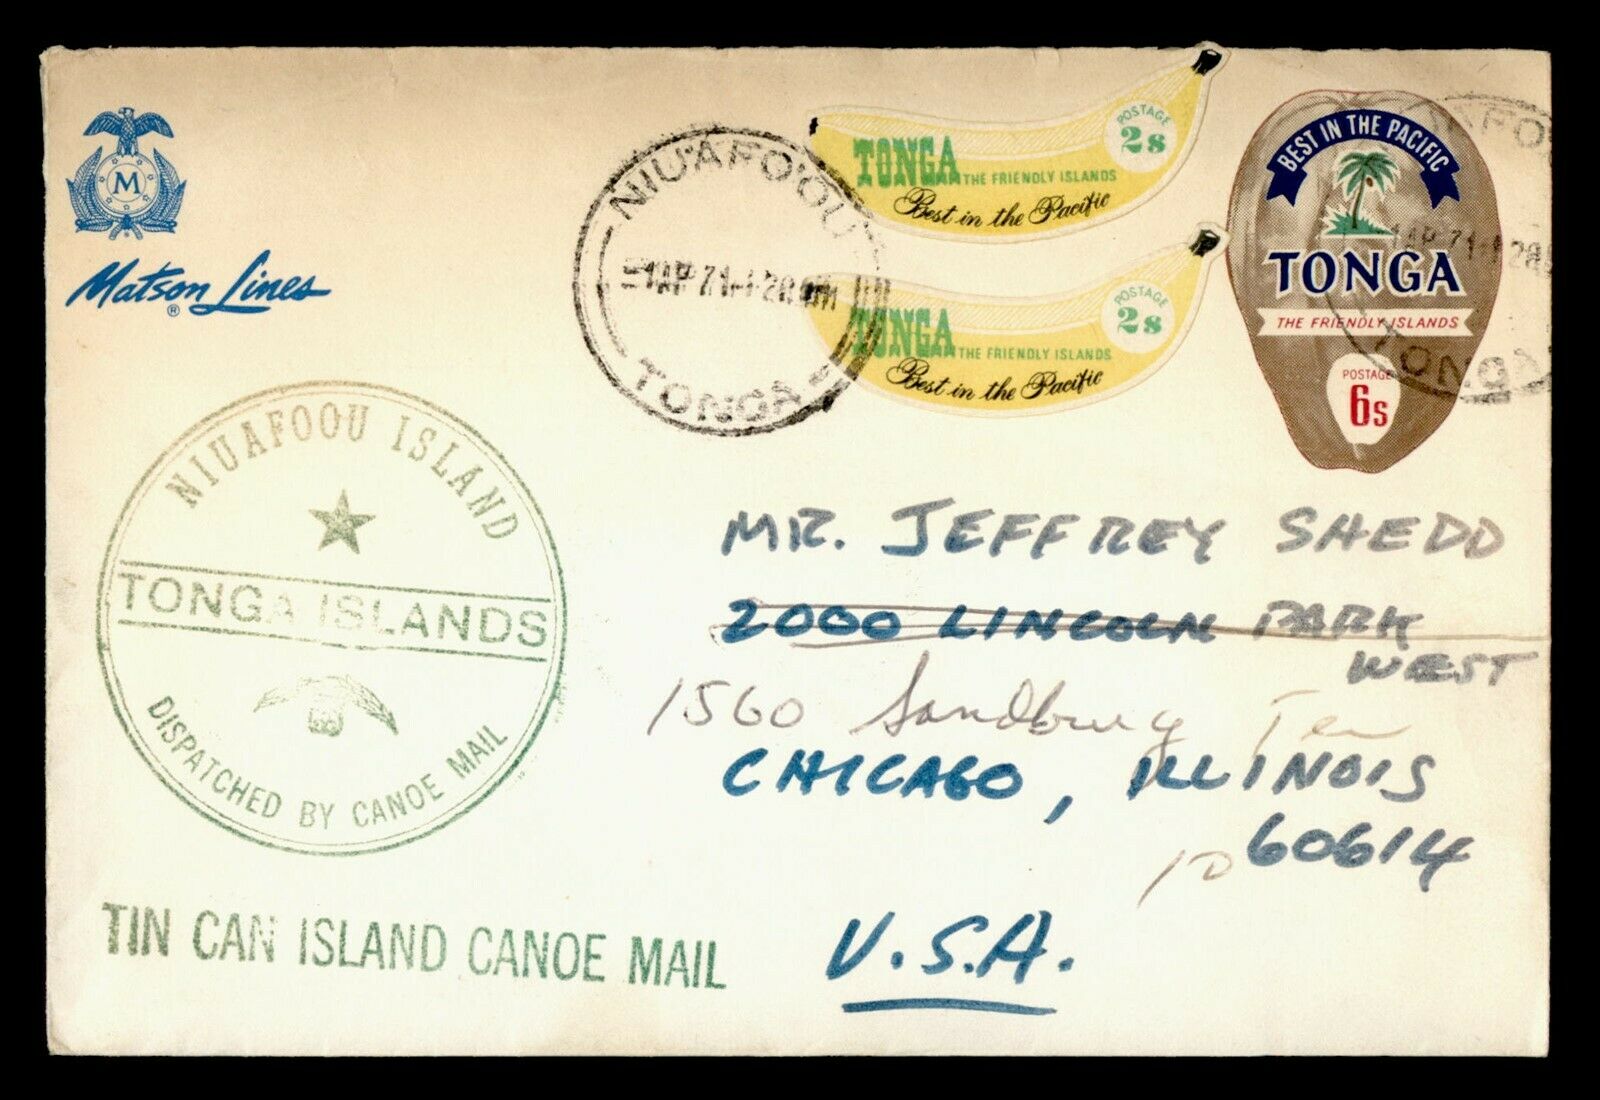 M
Matson Lines
®
NIUAFO'OU
1AP 71
TONGA
POSTAGE
2s
TONGA THE FRIENDLY ISLANDS
Best in the Pacific
POSTAGE
2s
TONGA THE FRIENDLY ISLANDS
Best in the Pacific
BEST IN THE PACIFIC
TONGA
THE FRIENDLY ISLANDS
POSTAGE
6s
1AP 71
TONGA
NIUAFOOU ISLAND
TONGA ISLANDS
DISPATCHED BY CANOE MAIL
TIN CAN ISLAND CANOE MAIL
MR. JEFFREY SHEDD
2000 LINCOLN PARK
WEST
1560 Sandburg Ter
CHICAGO, ILLINOIS
10 60614
U.S.A.